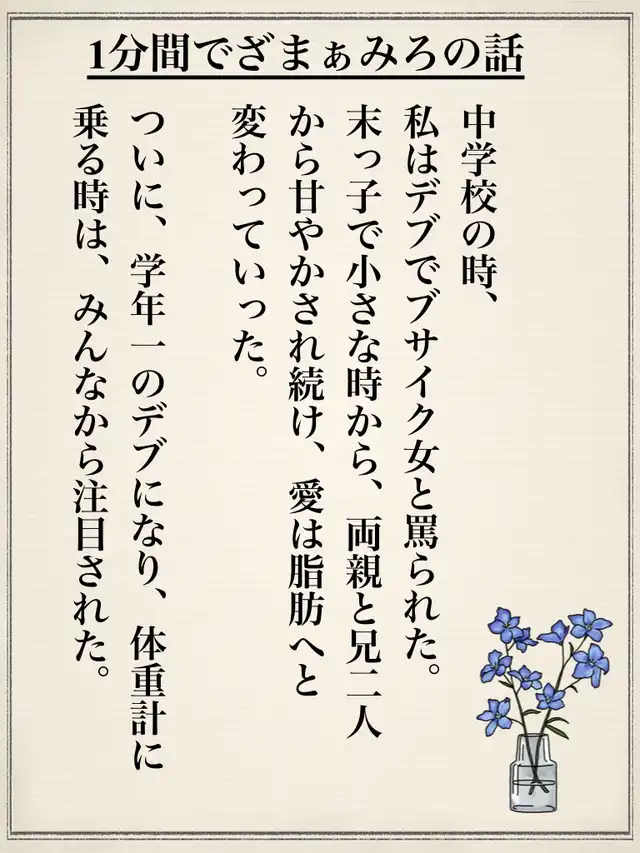 1分間でざまぁみろの話
中学校の時、
私はデブでブサイク女と罵られた。
末っ子で小さな時から、両親と兄二人
から甘やかされ続け、愛は脂肪へと
変わっていった。
ついに、学年一のデブになり、体重計に
乗る時は、みんなから注目された。